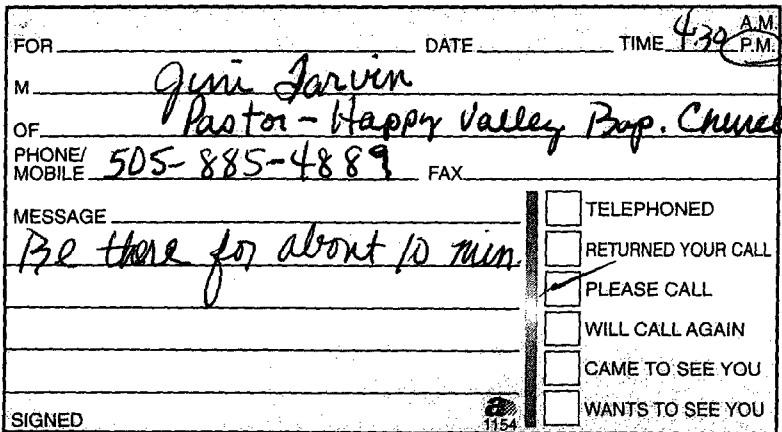 FOR DATE TIME 4:30 A.M. P.M.
M Jim Tarvin
OF Pastor - Happy Valley Bap. Church
PHONE/MOBILE 505-885-4889 FAX
MESSAGE
Be there for about 10 min.
TELEPHONED
RETURNED YOUR CALL
PLEASE CALL
WILL CALL AGAIN
CAME TO SEE YOU
WANTS TO SEE YOU
SIGNED
a
1154